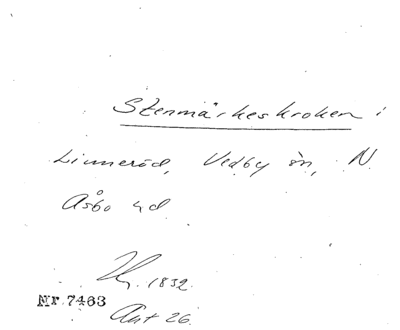 Stenmärkeskroken i
Linneröd, Vedby sn, N.
Åsbo hd
Hy. 1832.
Nr. 7463
Akt 26.